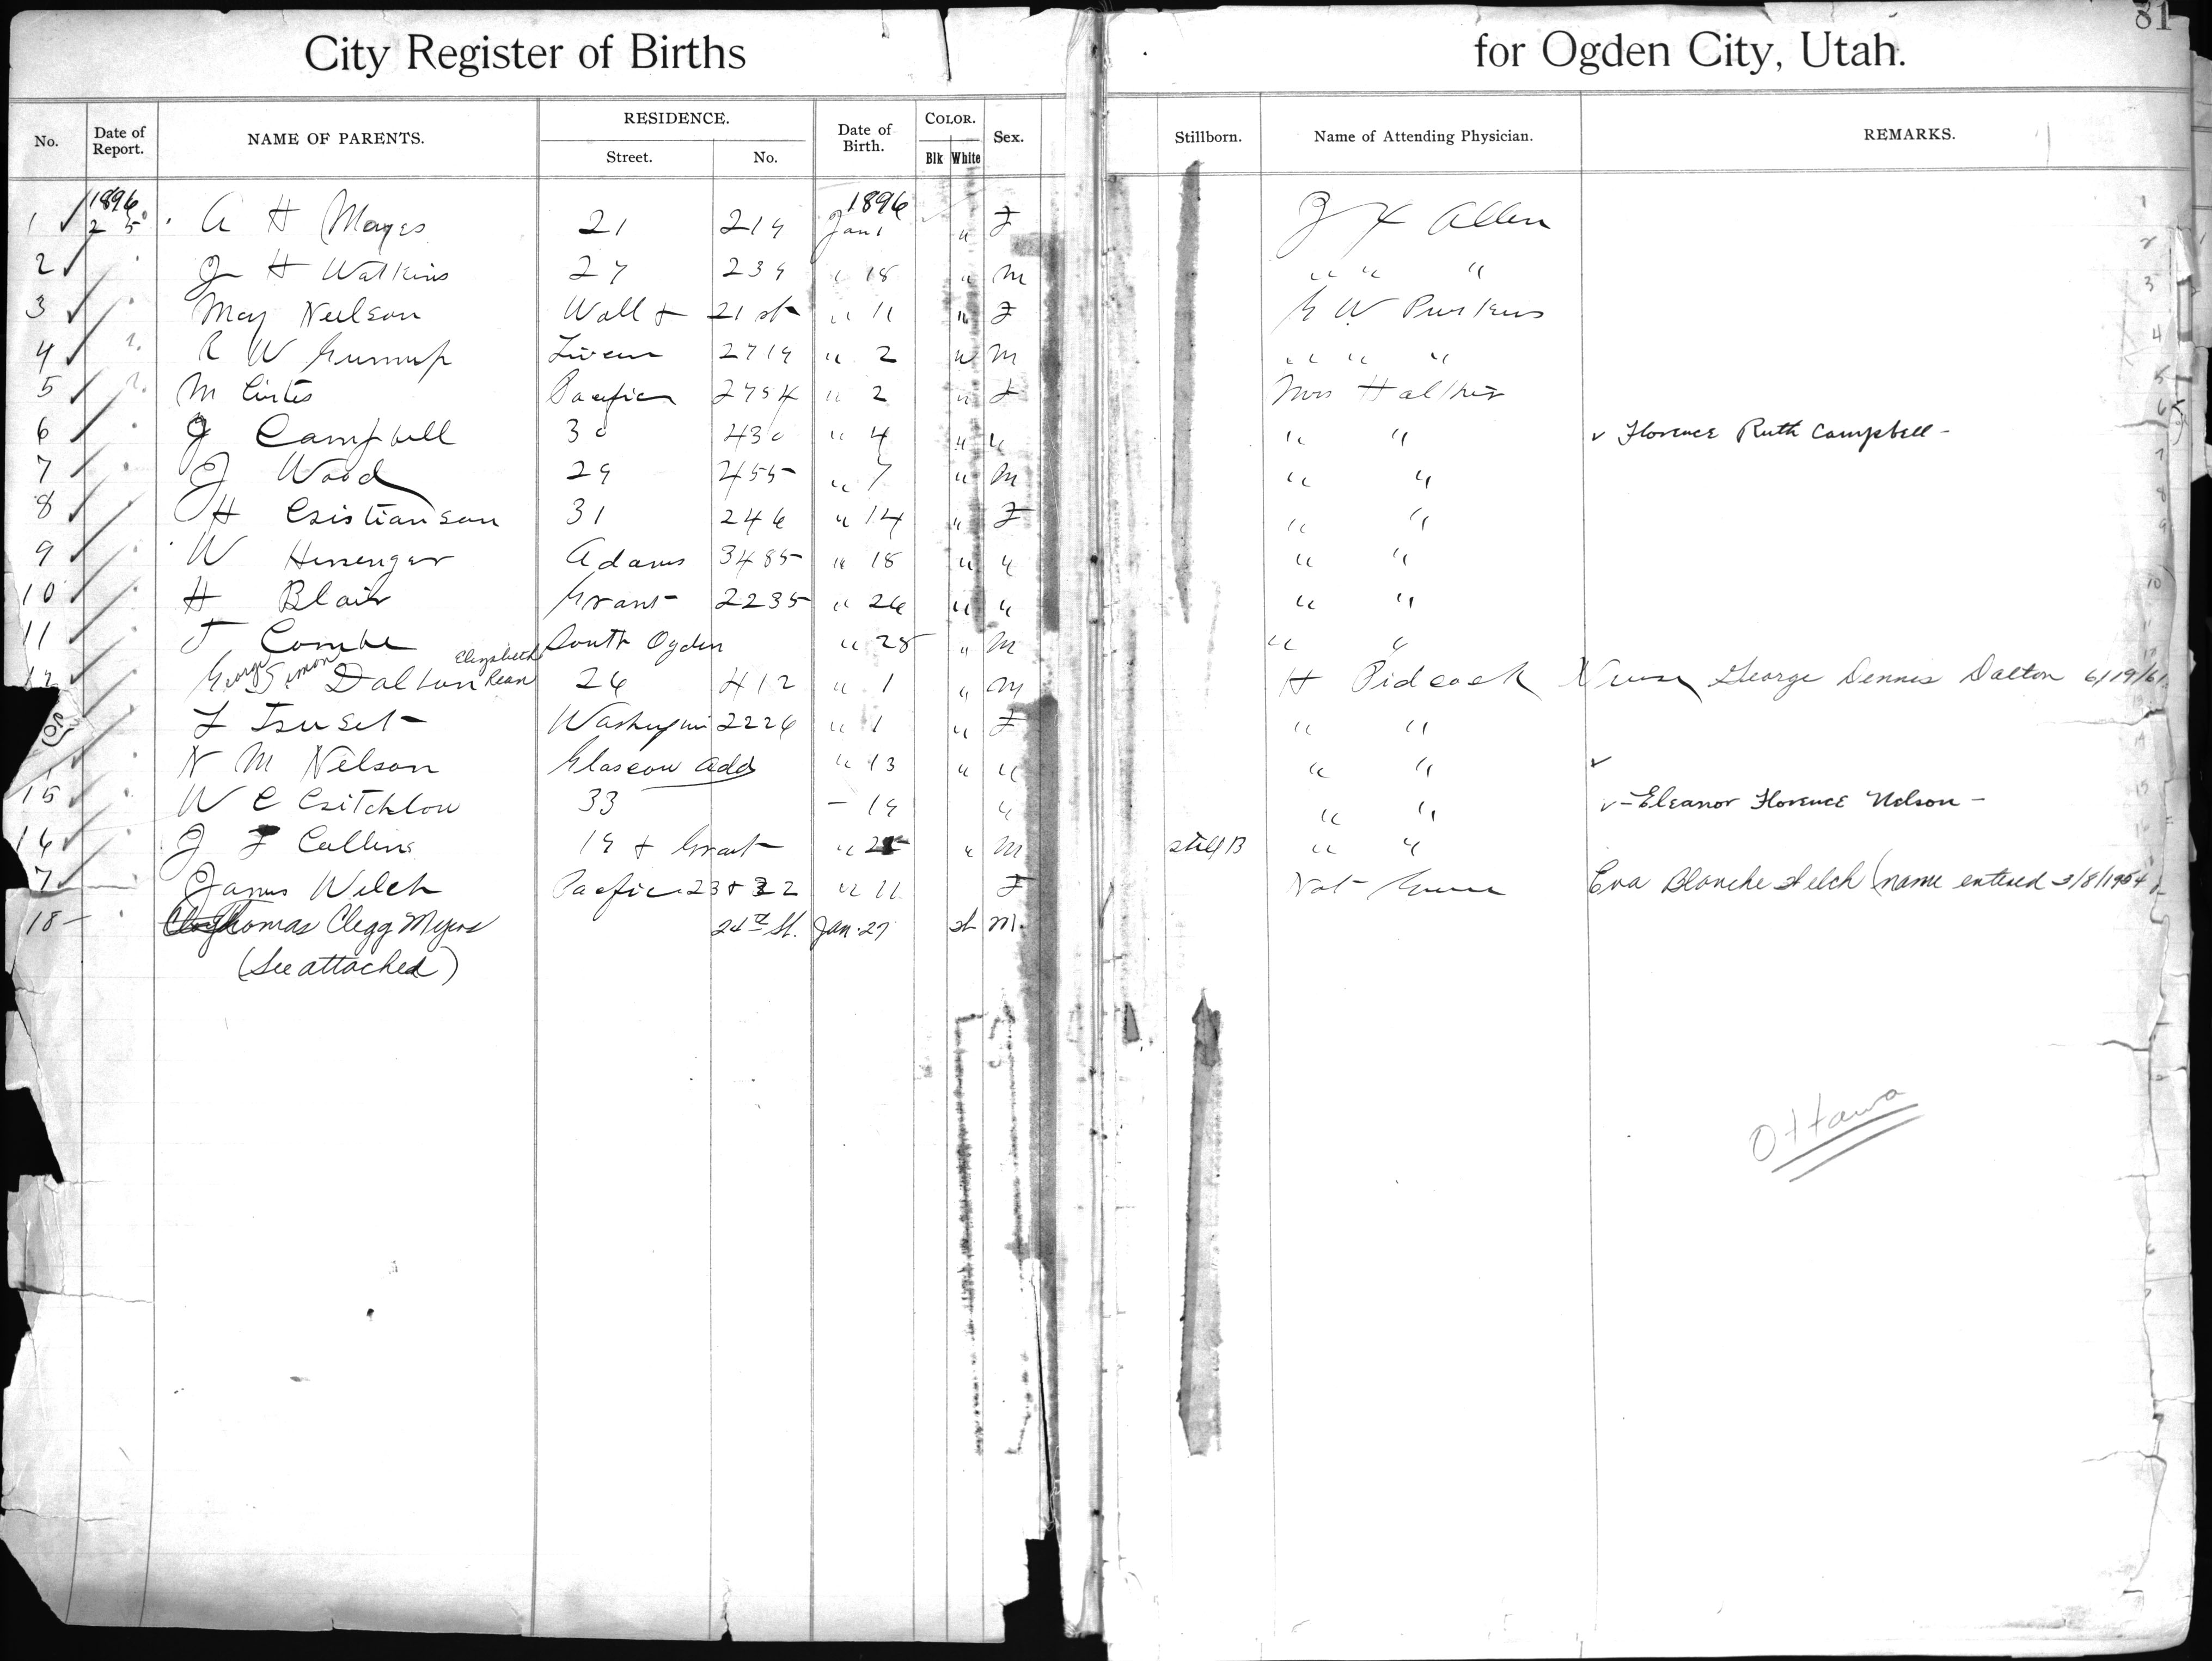 81
City Register of Births for Ogden City, Utah.
No. Date of Report. NAME OF PARENTS. RESIDENCE. Street. No. Date of Birth. COLOR. Blk White Sex. Stillborn. Name of Attending Physician. REMARKS.
1896 1896
1 2 5 A H Mayes 21 219 Jan 1 " F Allen
2 J H Watkins 27 239 " 18 " M " " "
3 May Neilson Wall + 21 st " 11 " F G W Perkins
4 R W 2719 " 2 W M " " "
5 M Pacific 2754 " 2 " F Mrs
6 J Campbell 30 430 " 4 " " " " Florence Ruth Campbell -
7 J Wood 29 455 " 7 " M " "
8 H Cristianson 31 246 " 14 " F " "
9 W Adams 3485 " 18 " " " "
10 H Blair Grant 2235 " 26 " " " "
11 J Combe South Ogden " 28 " M " "
12 George Simon Dalton Elizabeth 26 412 " 1 " M H Pidcock George Dennis Dalton 6/19/61
F 2226 " 1 " F " "
N M Nelson Glascow Add " 13 " " " "
15 W C Critchlow 33 - 19 " " " - Eleanor Florence Nelson -
16 J F Collins 19 + Grant " M still B " "
7 James Welch Pacific 23 + 22 " 11 F Not Given Eva Blanche Welch (name entered 3/8/1954
18 - Thomas Clegg Myers 24th St. Jan. 27 M.
(See attached)
Ottawa